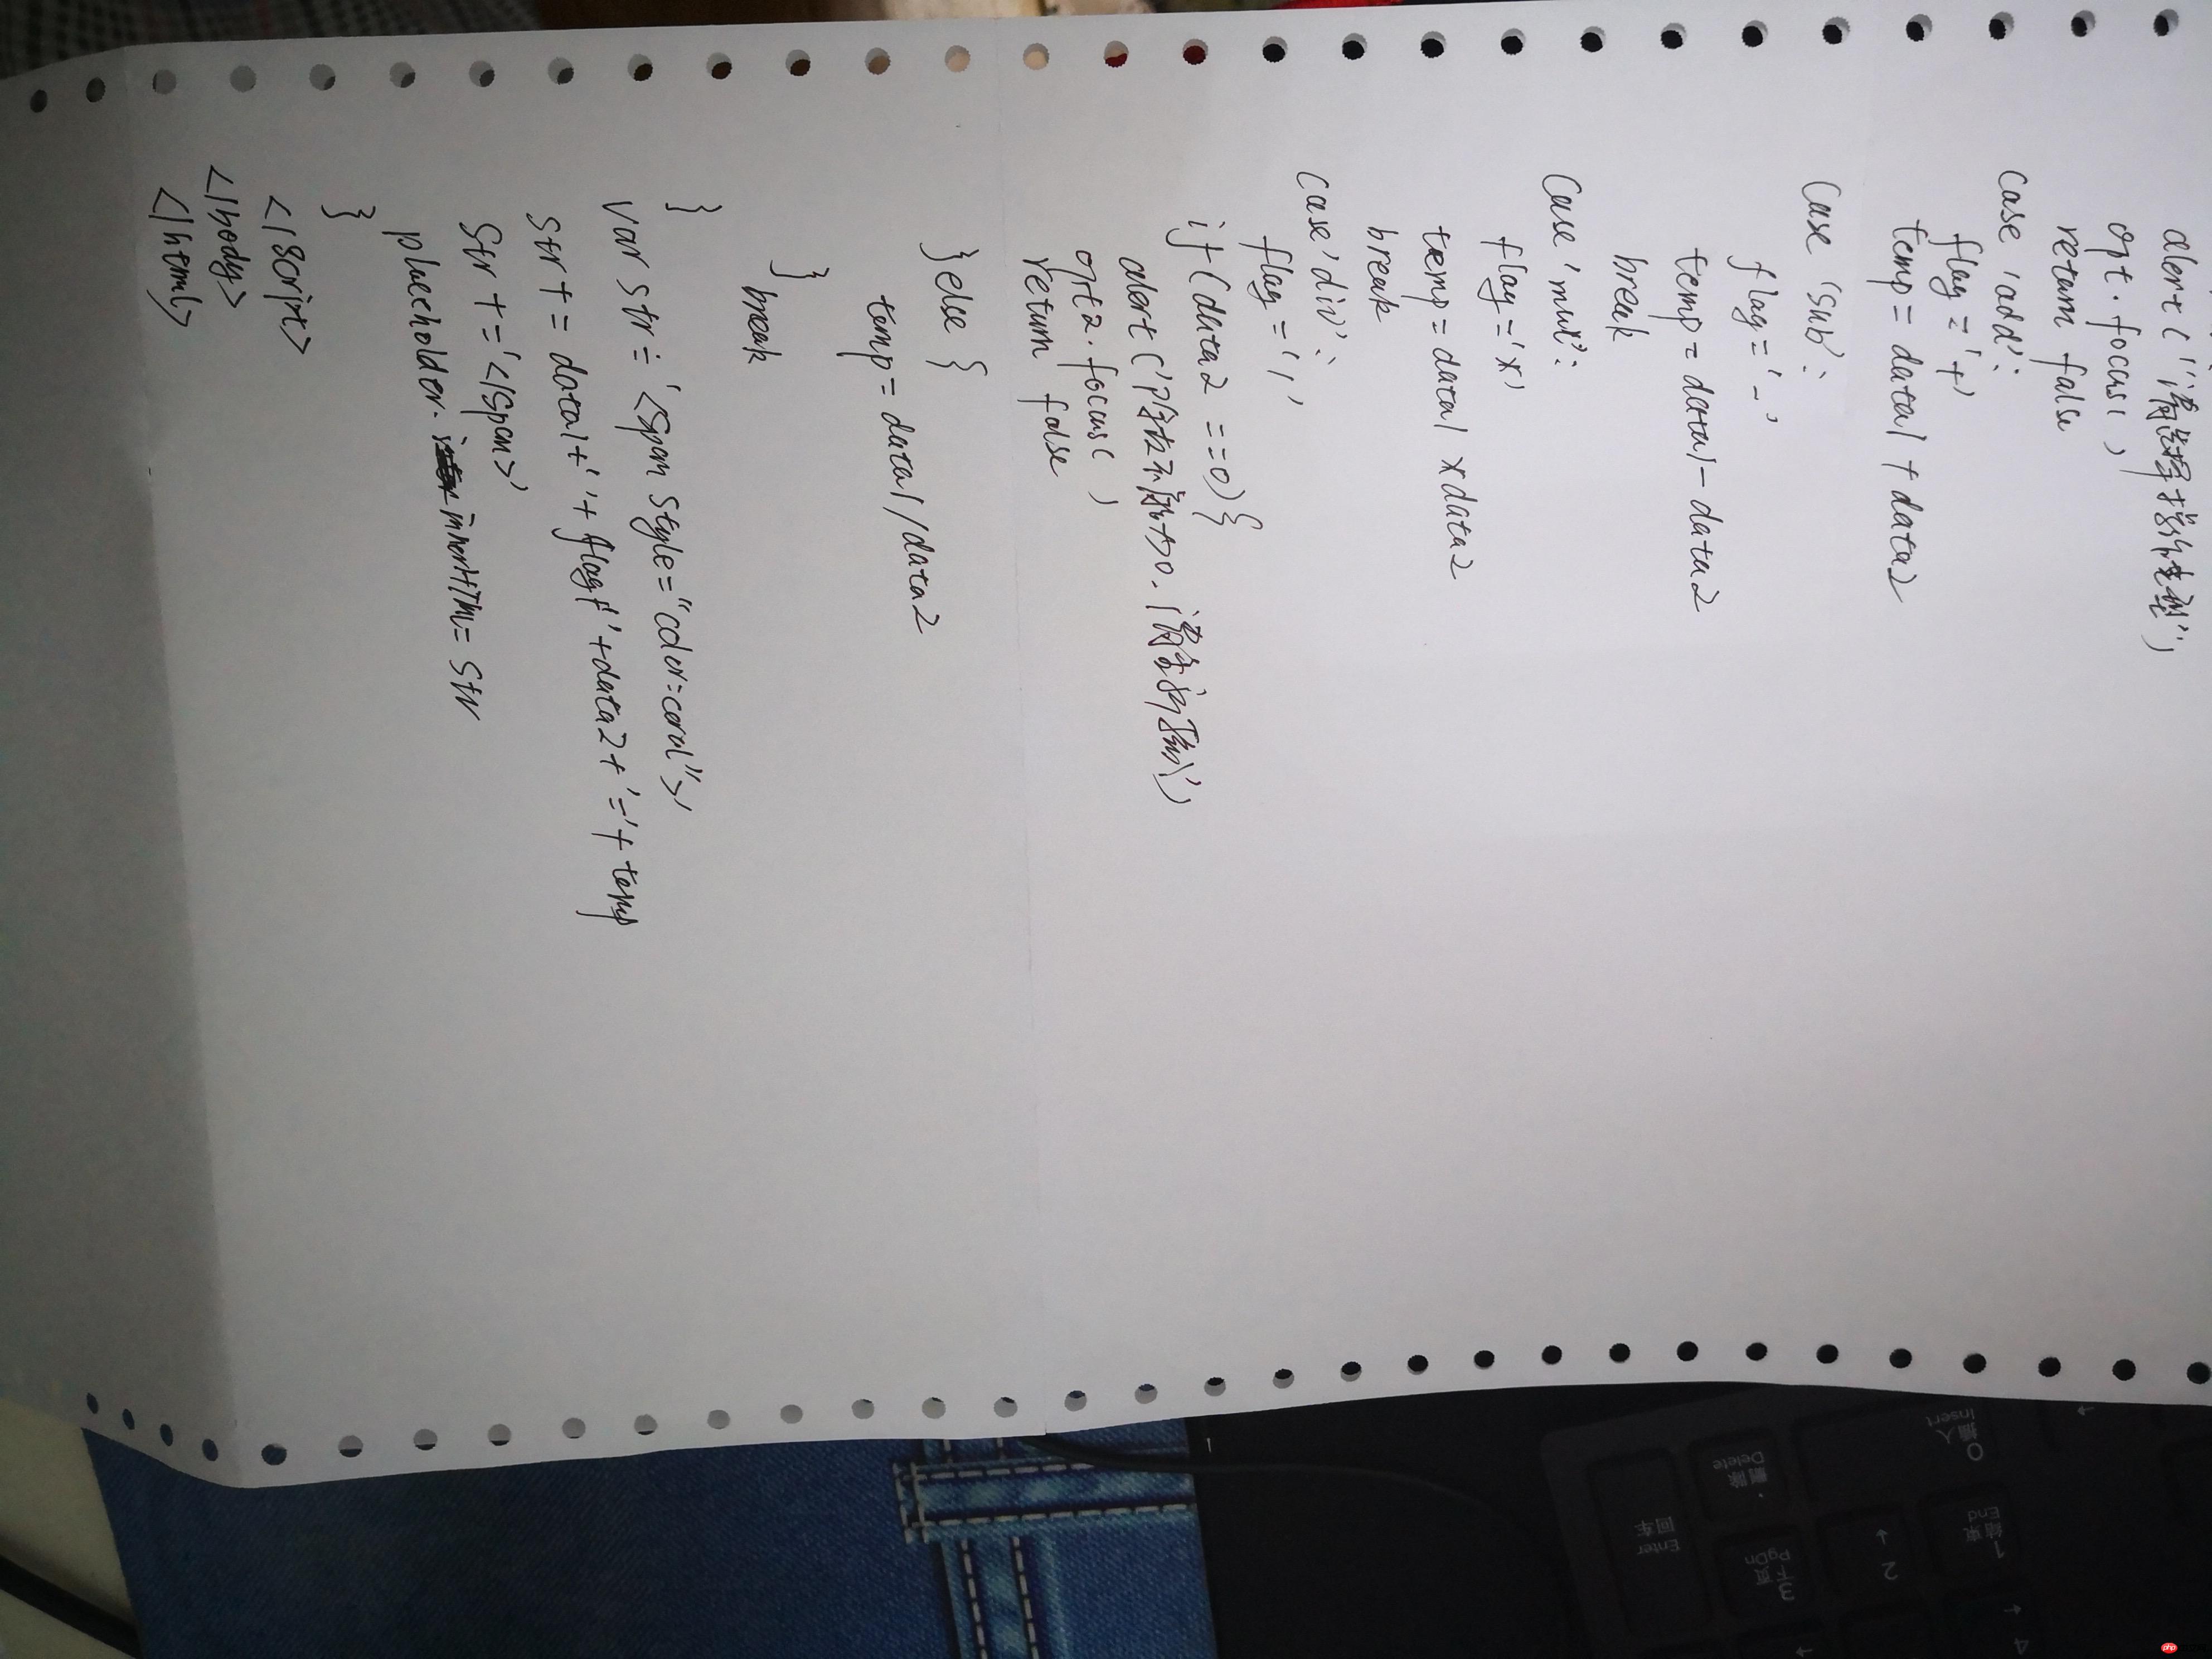 alert("请选择操作类型")
opt.focus()
return false
case 'add':
flag='+'
temp= data1 + data2
case 'sub':
flag='-'
temp=data1-data2
break
case 'mux':
flag='x'
temp=data1 x data2
break
case 'div':
flag='/'
if(data2 ===0){
alert('除数不能为0.请重新输入')
opt2.focus()
return false
}else{
temp=data1/data2
}
break
}
var str='<span style="color:coral">'
str += data1+' '+flag+' '+data2+'='+temp
str +='</span>'
placeholder. innerHTML= str
}
</script>
</body>
</html>
插入
Insert
0
删除
Delete
.
回车
Enter
结束
End
1
2
3
下页
PgDn
4
php